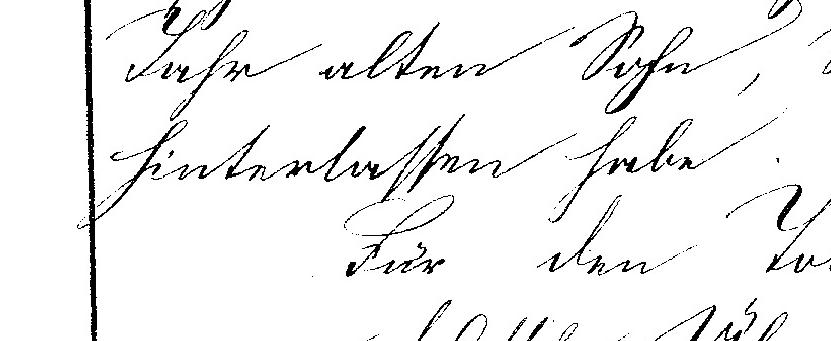 Jahr alten Sohn,
hinterlassen habe.
Für den